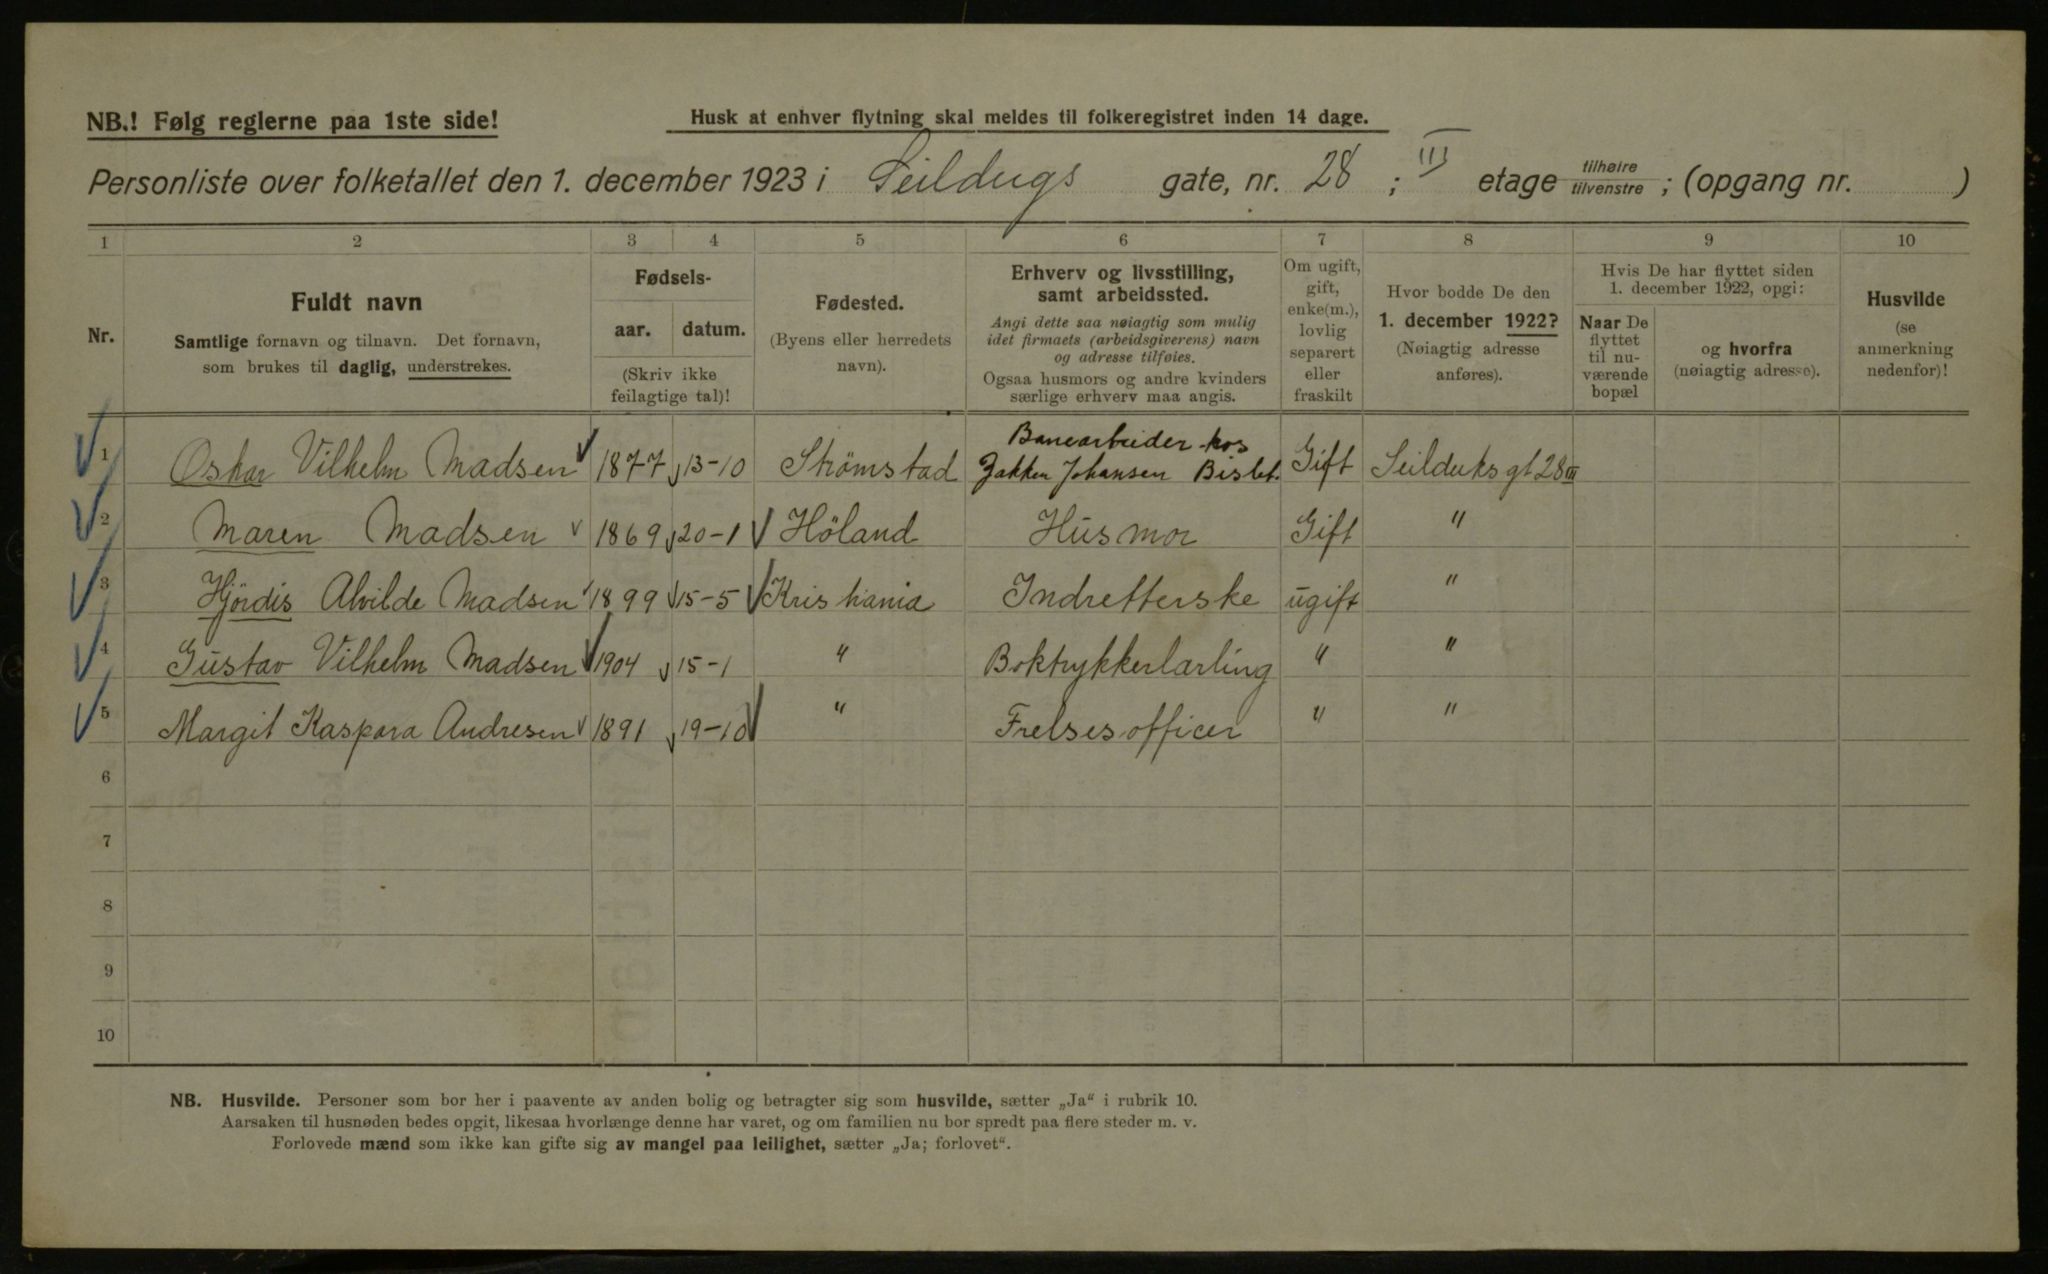 NB.! Følg reglerne paa 1ste side!
Husk at enhver flytning skal meldes til folkeregistret inden 14 dage.
Personliste over folketallet den 1. december 1923 i Seildugs gate, nr. 28 ; III etage tilhøire tilvenstre ; (opgang nr. )
1 2 3 4 5 6 7 8 9 10
Nr.
Fuldt navn
Samtlige fornavn og tilnavn. Det fornavn,
som brukes til daglig, understrekes.
Fødsels-
aar. datum.
(Skriv ikke
feilagtige tal)!
Fødested.
(Byens eller herredets
navn).
Erhverv og livsstilling,
samt arbeidssted.
Angi dette saa nøiagtig som mulig
idet firmaets (arbeidsgiverens) navn
og adresse tilføies.
Ogsaa husmors og andre kvinders
særlige erhverv maa angis.
Om ugift,
gift,
enke(m.),
lovlig
separert
eller
fraskilt
Hvor bodde De den
1. december 1922?
(Nøiagtig adresse
anføres).
Hvis De har flyttet siden
1. december 1922, opgi:
Naar De
flyttet
til nu-
værende
bopæl
og hvorfra
(nøiagtig adresse).
Husvilde
(se
anmerkning
nedenfor)!
1 Oskar Vilhelm Madsen 1877 13-10 Strømstad Banearbeider hos
Zakken Johansen Bislet. Gift Seilduks gt 28 III
2 Maren Madsen 1869 20-1 Höland Husmor Gift "
3 Hjördis Alvilde Madsen 1899 15-5 Kristiania Indretterske ugift "
4 Gustav Vilhelm Madsen 1904 15-1 " Boktrykkerlærling " "
5 Margit Kaspara Andresen 1891 19-10 " Frelsesofficer " "
6
7
8
9
10
NB. Husvilde. Personer som bor her i paavente av anden bolig og betragter sig som husvilde, sætter „Ja“ i rubrik 10.
Aarsaken til husnøden bedes opgit, likesaa hvorlænge denne har varet, og om familien nu bor spredt paa flere steder m. v.
Forlovede mænd som ikke kan gifte sig av mangel paa leilighet, sætter „Ja; forlovet“.